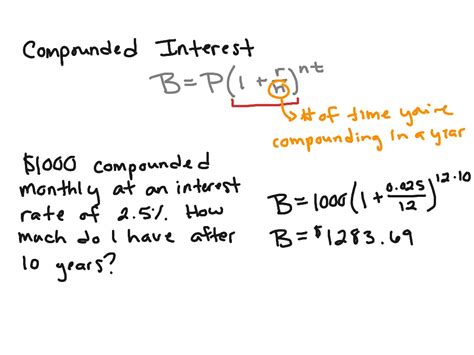 Compounded Interest
B = P(1 + r/n)^nt
# of time you're
compounding in a year
$1000 compounded
monthly at an interest
rate of 2.5%. How
much do I have after
10 years?
B = 1000(1 + 0.025/12)^12·10
B = $1283.69